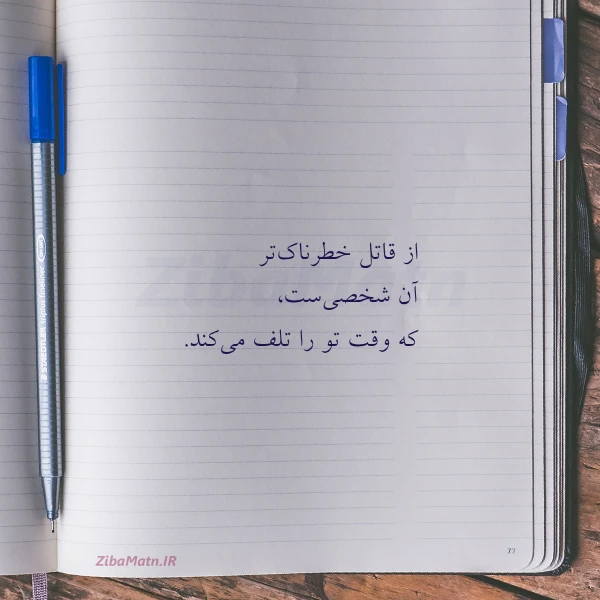 از قاتل خطرناک‌تر
آن شخصی‌ست،
که وقت تو را تلف می‌کند.
ZibaMatn
ZibaMatn.IR
77